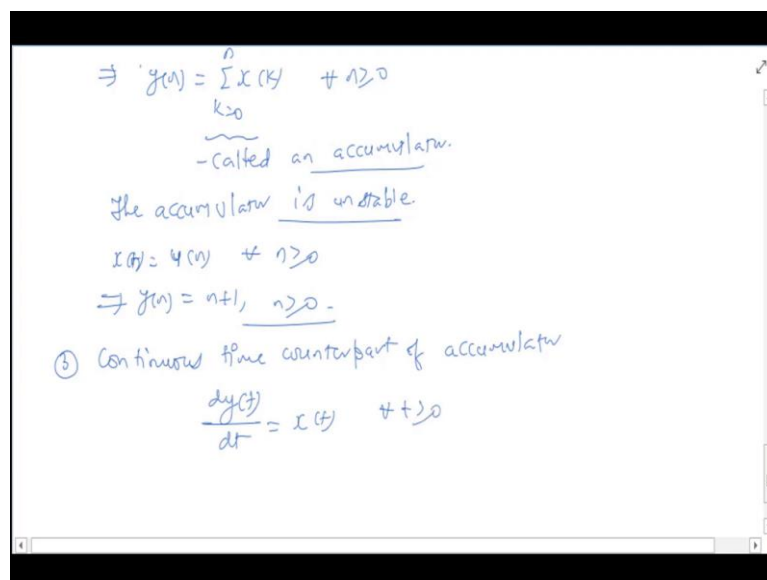 ⇒ y(n) = Σ x(k) ∀ n≥0
n
k=0
- called an accumulator.
The accumulator is unstable.
x(n) = u(n) ∀ n≥0
⇒ y(n) = n+1, n≥0.
③ Continuous time counterpart of accumulator
dy(t)/dt = x(t) ∀ t≥0